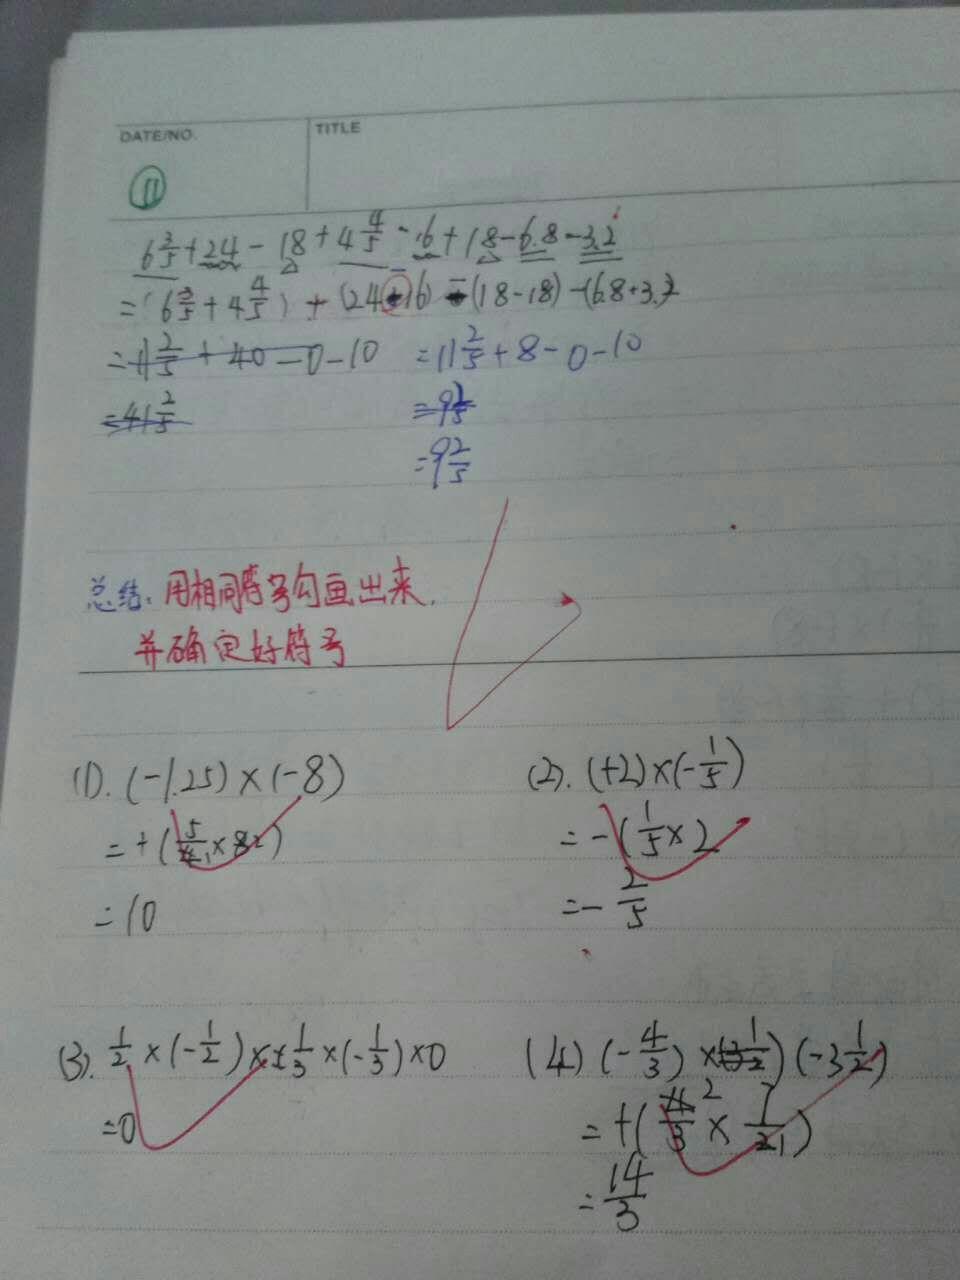 DATE/NO.
TITLE
⑪
6 3/5 + 24 - 18 + 4 4/5 - 16 + 18 - 6.8 - 3.2
= (6 3/5 + 4 4/5) + (24 - 16) - (18 - 18) - (6.8 + 3.2
= 11 2/5 + 40 - 0 - 10 = 11 2/5 + 8 - 0 - 10
= 41 2/5
= 9 2/5
总结：用相同符号勾画出来，
并确定好符号
(1). (-1.25) × (-8) (2). (+2) × (-1/5)
= +(5/4 × 8) = -(1/5 × 2
= 10 = - 2/5
(3). 1/2 × (-1/2) × 1/3 × (-1/3) × 0 (4) (-4/3) × (-3 1/2)
= 0 = +(4/3 × 7/2)
= 14/3